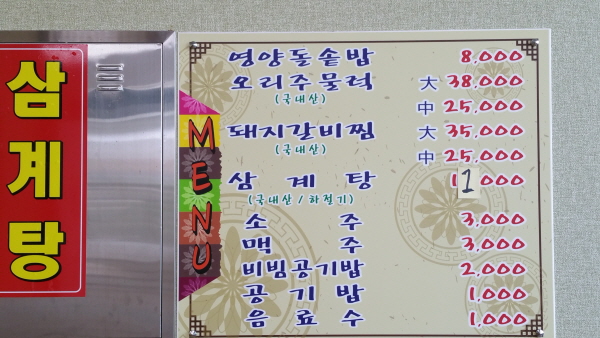 삼계탕
MENU
영양돌솥밥 8,000
오리주물럭 大 38,000
(국내산)
中 25,000
돼지갈비찜 大 35,000
(국내산)
中 25,000
삼계탕 11000
(국내산/하절기)
소주 3,000
맥주 3,000
비빔공기밥 2,000
공기밥 1,000
음료수 1,000